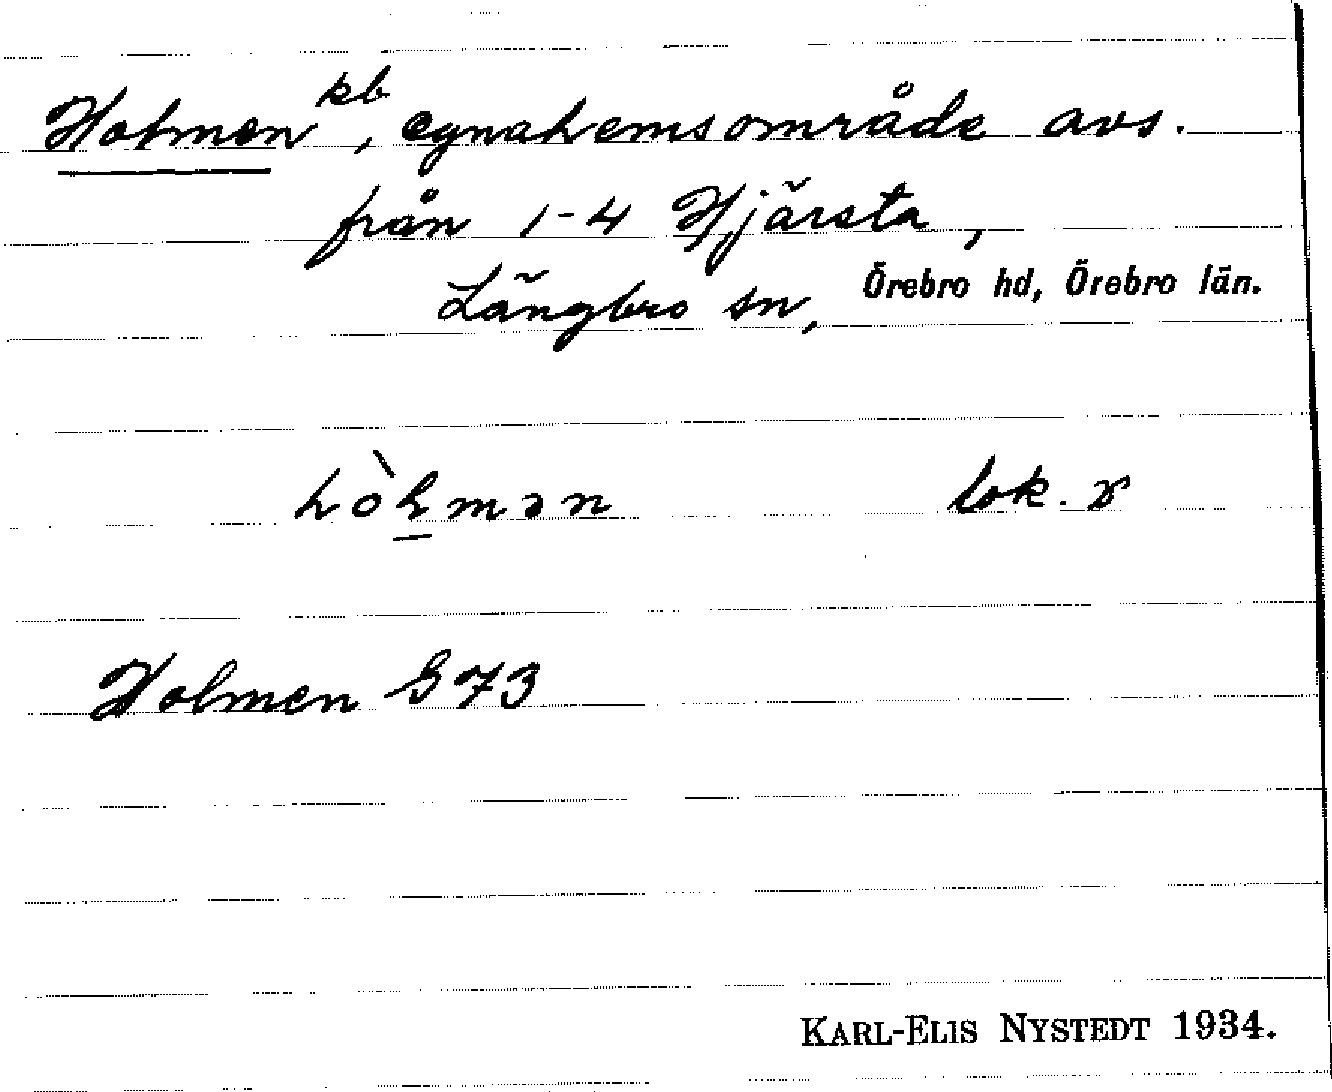 Holmen kb, egnahemsområde avs.
från 1-4 Hjärsta,
Längbro sn, Örebro hd, Örebro län.
hòlmən lok. r
Holmen G73
KARL-ELIS NYSTEDT 1934.